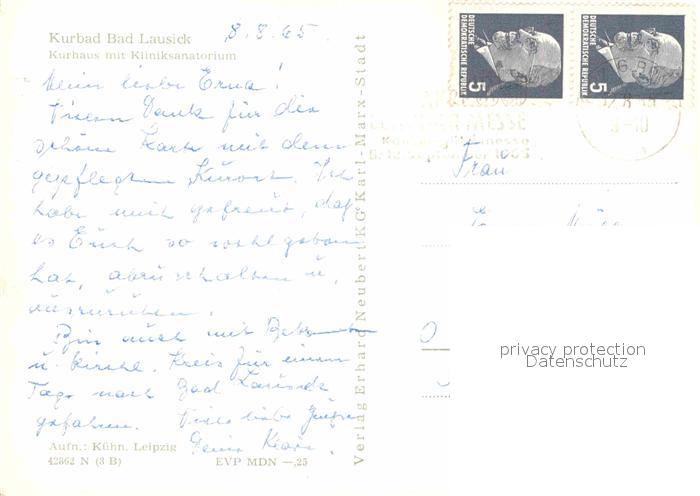 Kurbad Bad Lausick
Kurhaus mit Kliniksanatorium
8.8.65.
Meine liebe Erna!
Vielen Dank für die
schöne Karte mit dem
gepflegten Kurort. Ich
habe mich gefreut, daß
es Euch so wohl getan
hat, abzuschalten u.
auszuruhen.
Bin auch mit
u. kirchl. Kreis für einen
Tag nach Bad Lausick
gefahren. Viele liebe Grüße
Deine
Aufn.: Kühn, Leipzig
42862 N (3 B)
EVP MDN —,25
Verlag Erhard Neubert KG Karl-Marx-Stadt
DEUTSCHE
DEMOKRATISCHE REPUBLIK
5
DEUTSCHE
DEMOKRATISCHE REPUBLIK
5
MESSE
Frau
privacy protection
Datenschutz